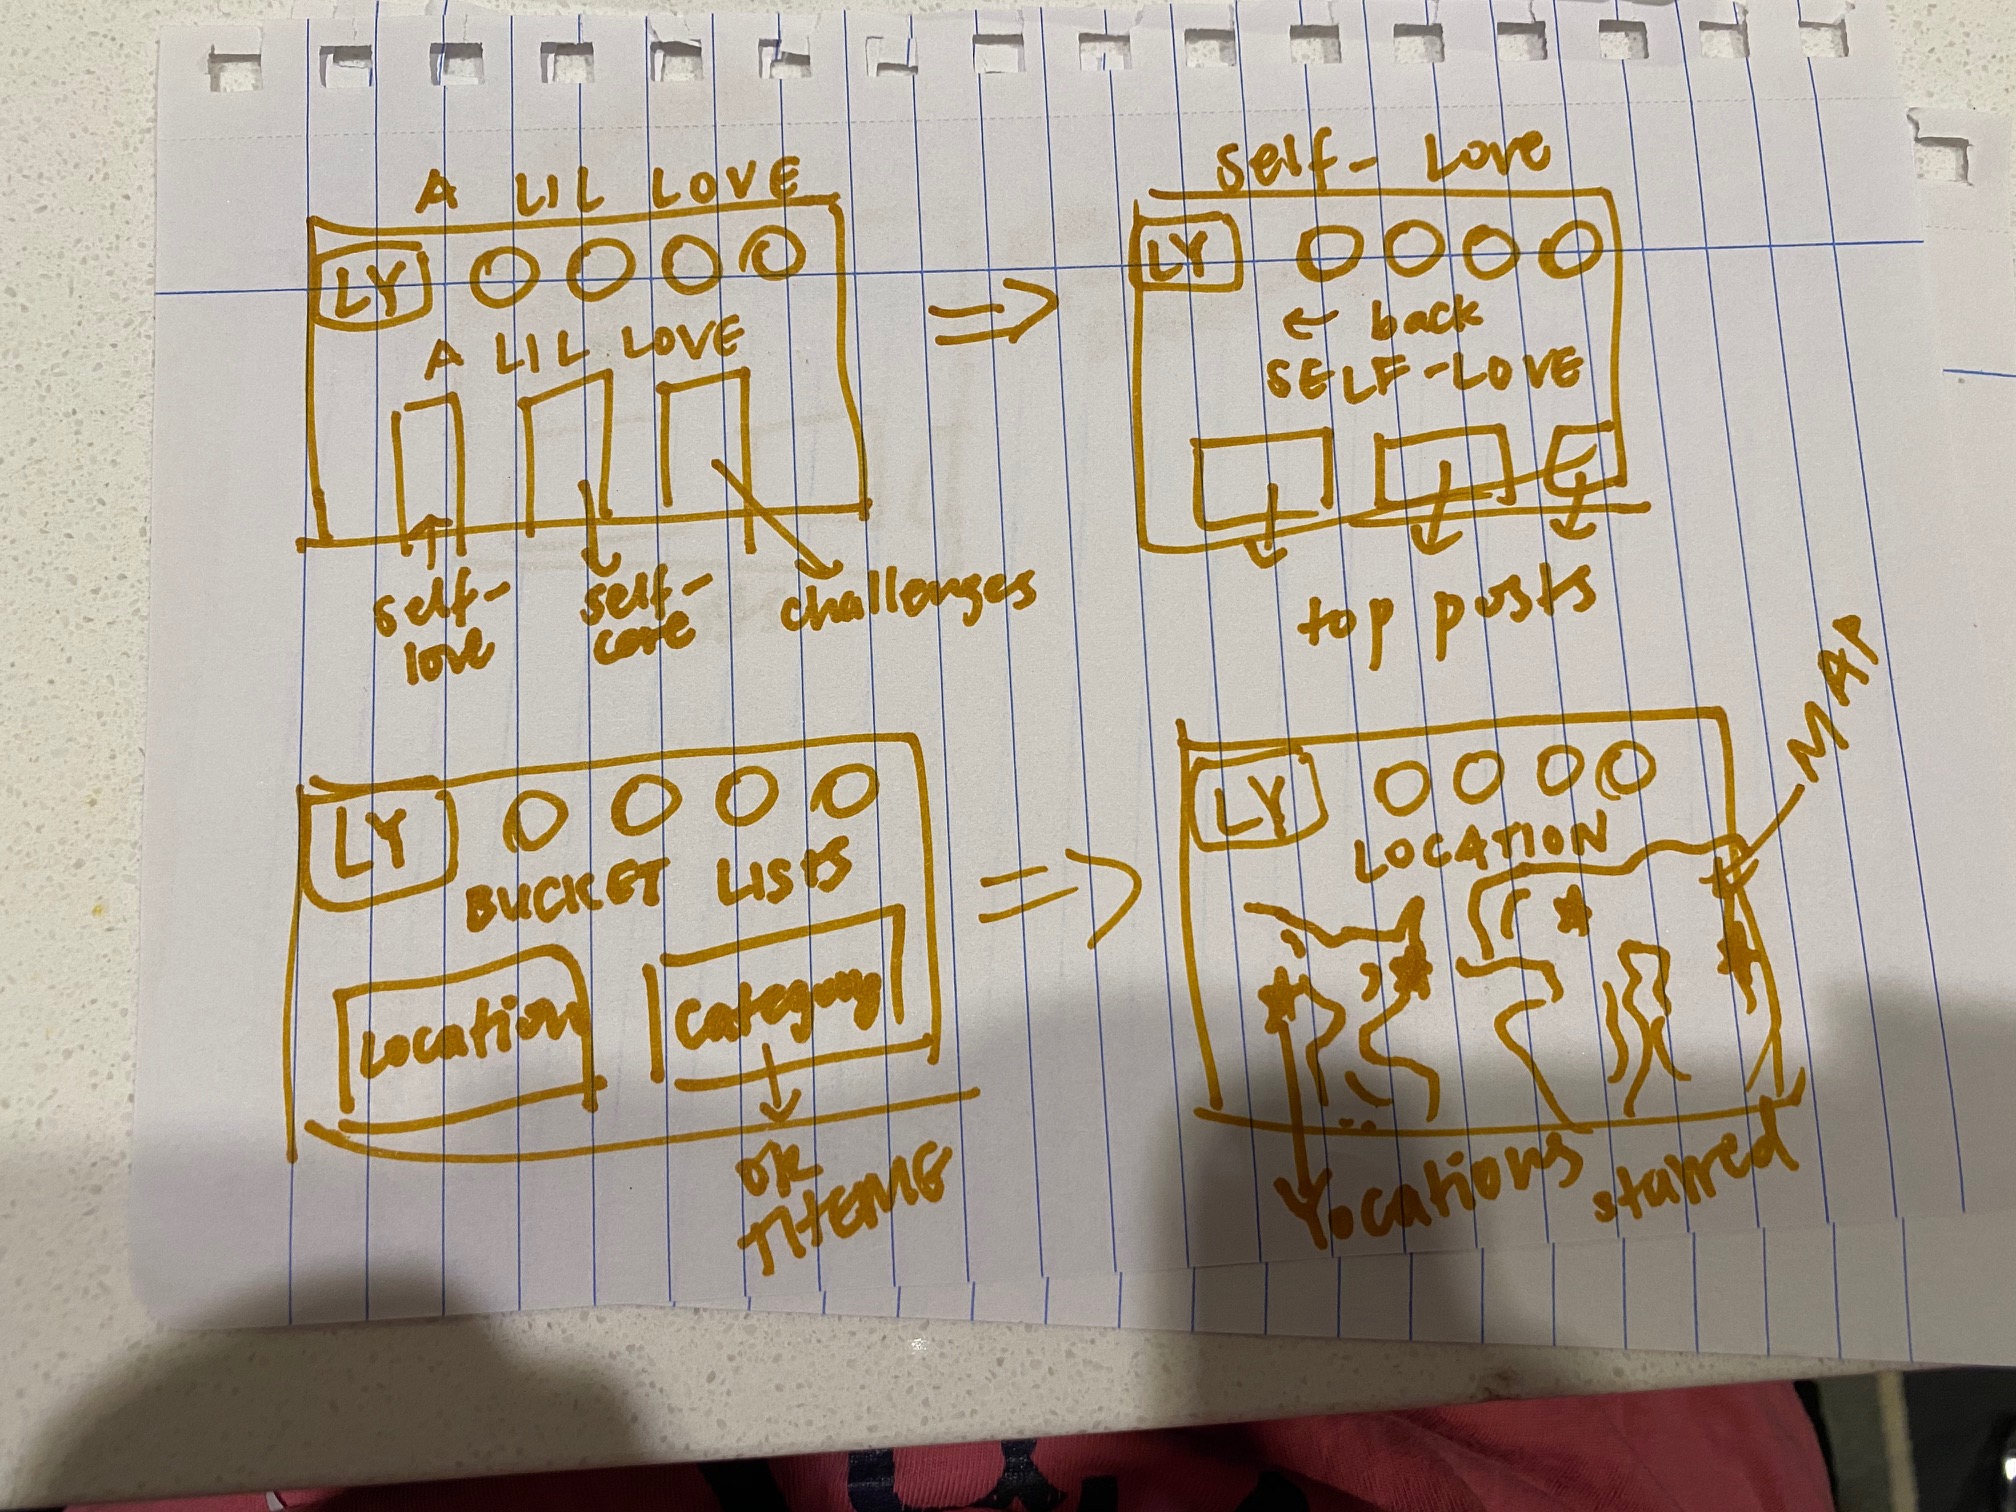 A LIL LOVE
LY
A LIL LOVE
self-
love
self-
care
challenges
Self-Love
LY
← back
SELF-LOVE
top posts
LY
BUCKET LISTS
Location
Category
OR
THEMES
LY
LOCATION
MAP
Locations starred